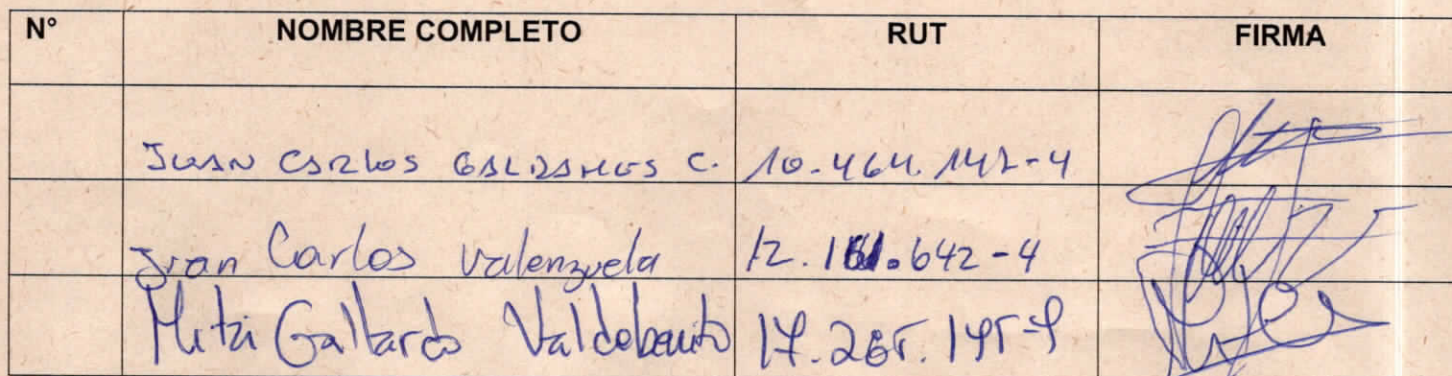 N° NOMBRE COMPLETO RUT FIRMA
JUAN CARLOS GALDAMES C. 10.464.142-4
Juan Carlos Valenzuela 12.161.642-4
Mitzi Gallardo Valdebenito